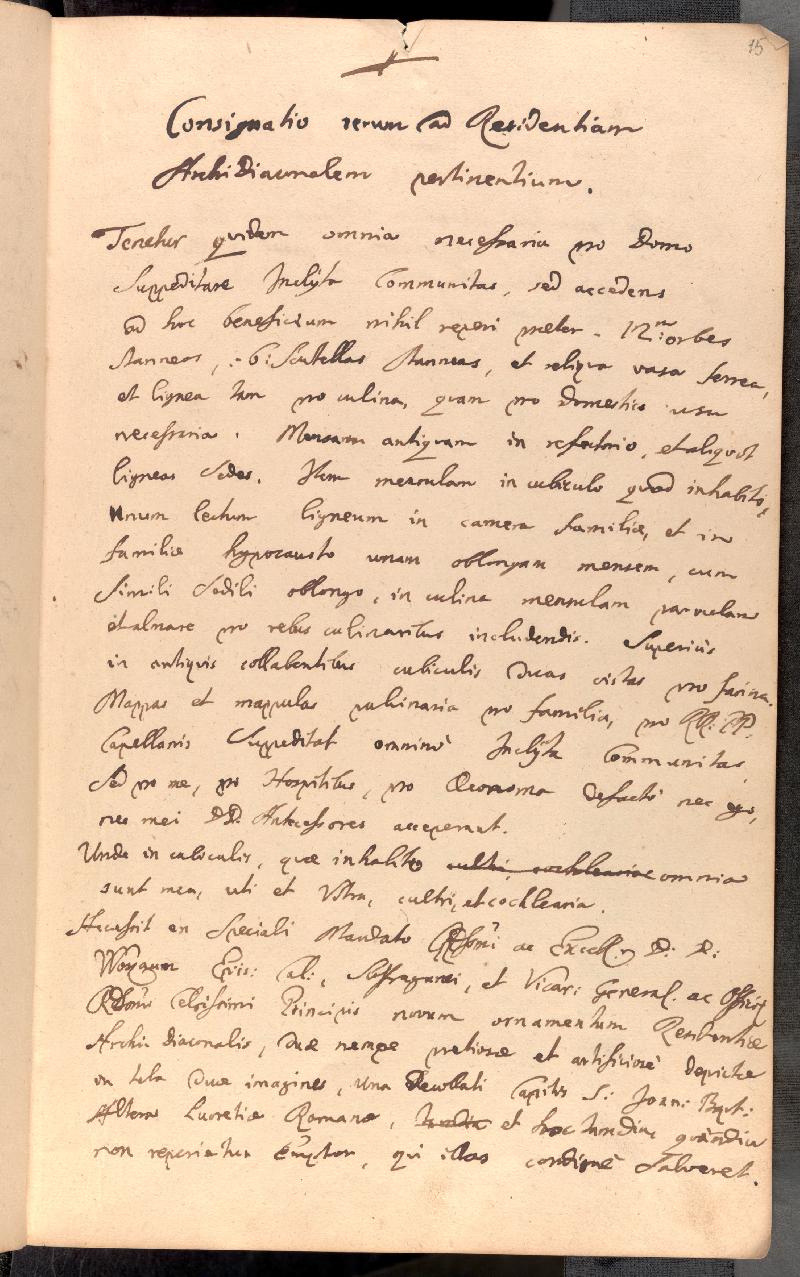 15
Consignatio rerum ad Residentiam
Archidiaconalem pertinentium.
Tenetur quidem omnia necessaria pro Domo
Suppeditare Inclyta Communitas, sed accedens
ad hoc beneficium nihil reperi praeter. 12 orbes
stanneos, :6: scutellas stanneas, et reliqua vasa ferrea,
et lignea tam pro culina, quam pro domestico usu
necessaria. Mensam antiquam in refectorio, et aliquot
ligneas sedes. Item mensulam in cubiculo quod inhabito,
Unum lectum ligneum in camera familiae, et in
familiae hypocausto unam oblongam mensem, cum
simili sedili oblongo, in culina mensulam parvulam
et almare pro rebus culinaribus includendis. Superius
in antiquis collabentibus cubiculis duas cistas pro farina.
Mappas et mappulas pulvinaria pro familia, pro RR: PP.
Capellanis suppeditat omninò Inclyta Communitas,
Sed pro me, pro Hospitibus, pro Oeconoma defacto nec ego,
nec mei DD. Antecessores acceperunt.
Unde in cubiculis, quae inhabito cultri, cochlearia omnia
sunt mea, uti et Vitra, cultri, et cochlearia.
Accessit ex Speciali Mandato ac Excell. D: D:
Epis: Suffraganei, et Vicar: General. ac
Celsissimi Principis novum ornamentum Residentiae
Archidiaconalis, duae nempe pretiosae et artificiosè depictae
in tela duae imagines, una Decollati Capitis S: Joan: Bapt:
Altera Lucretiae Romanae, et hoc tamdiu, quamdiu
non reperietur Emptor, qui illas condignè salveret.